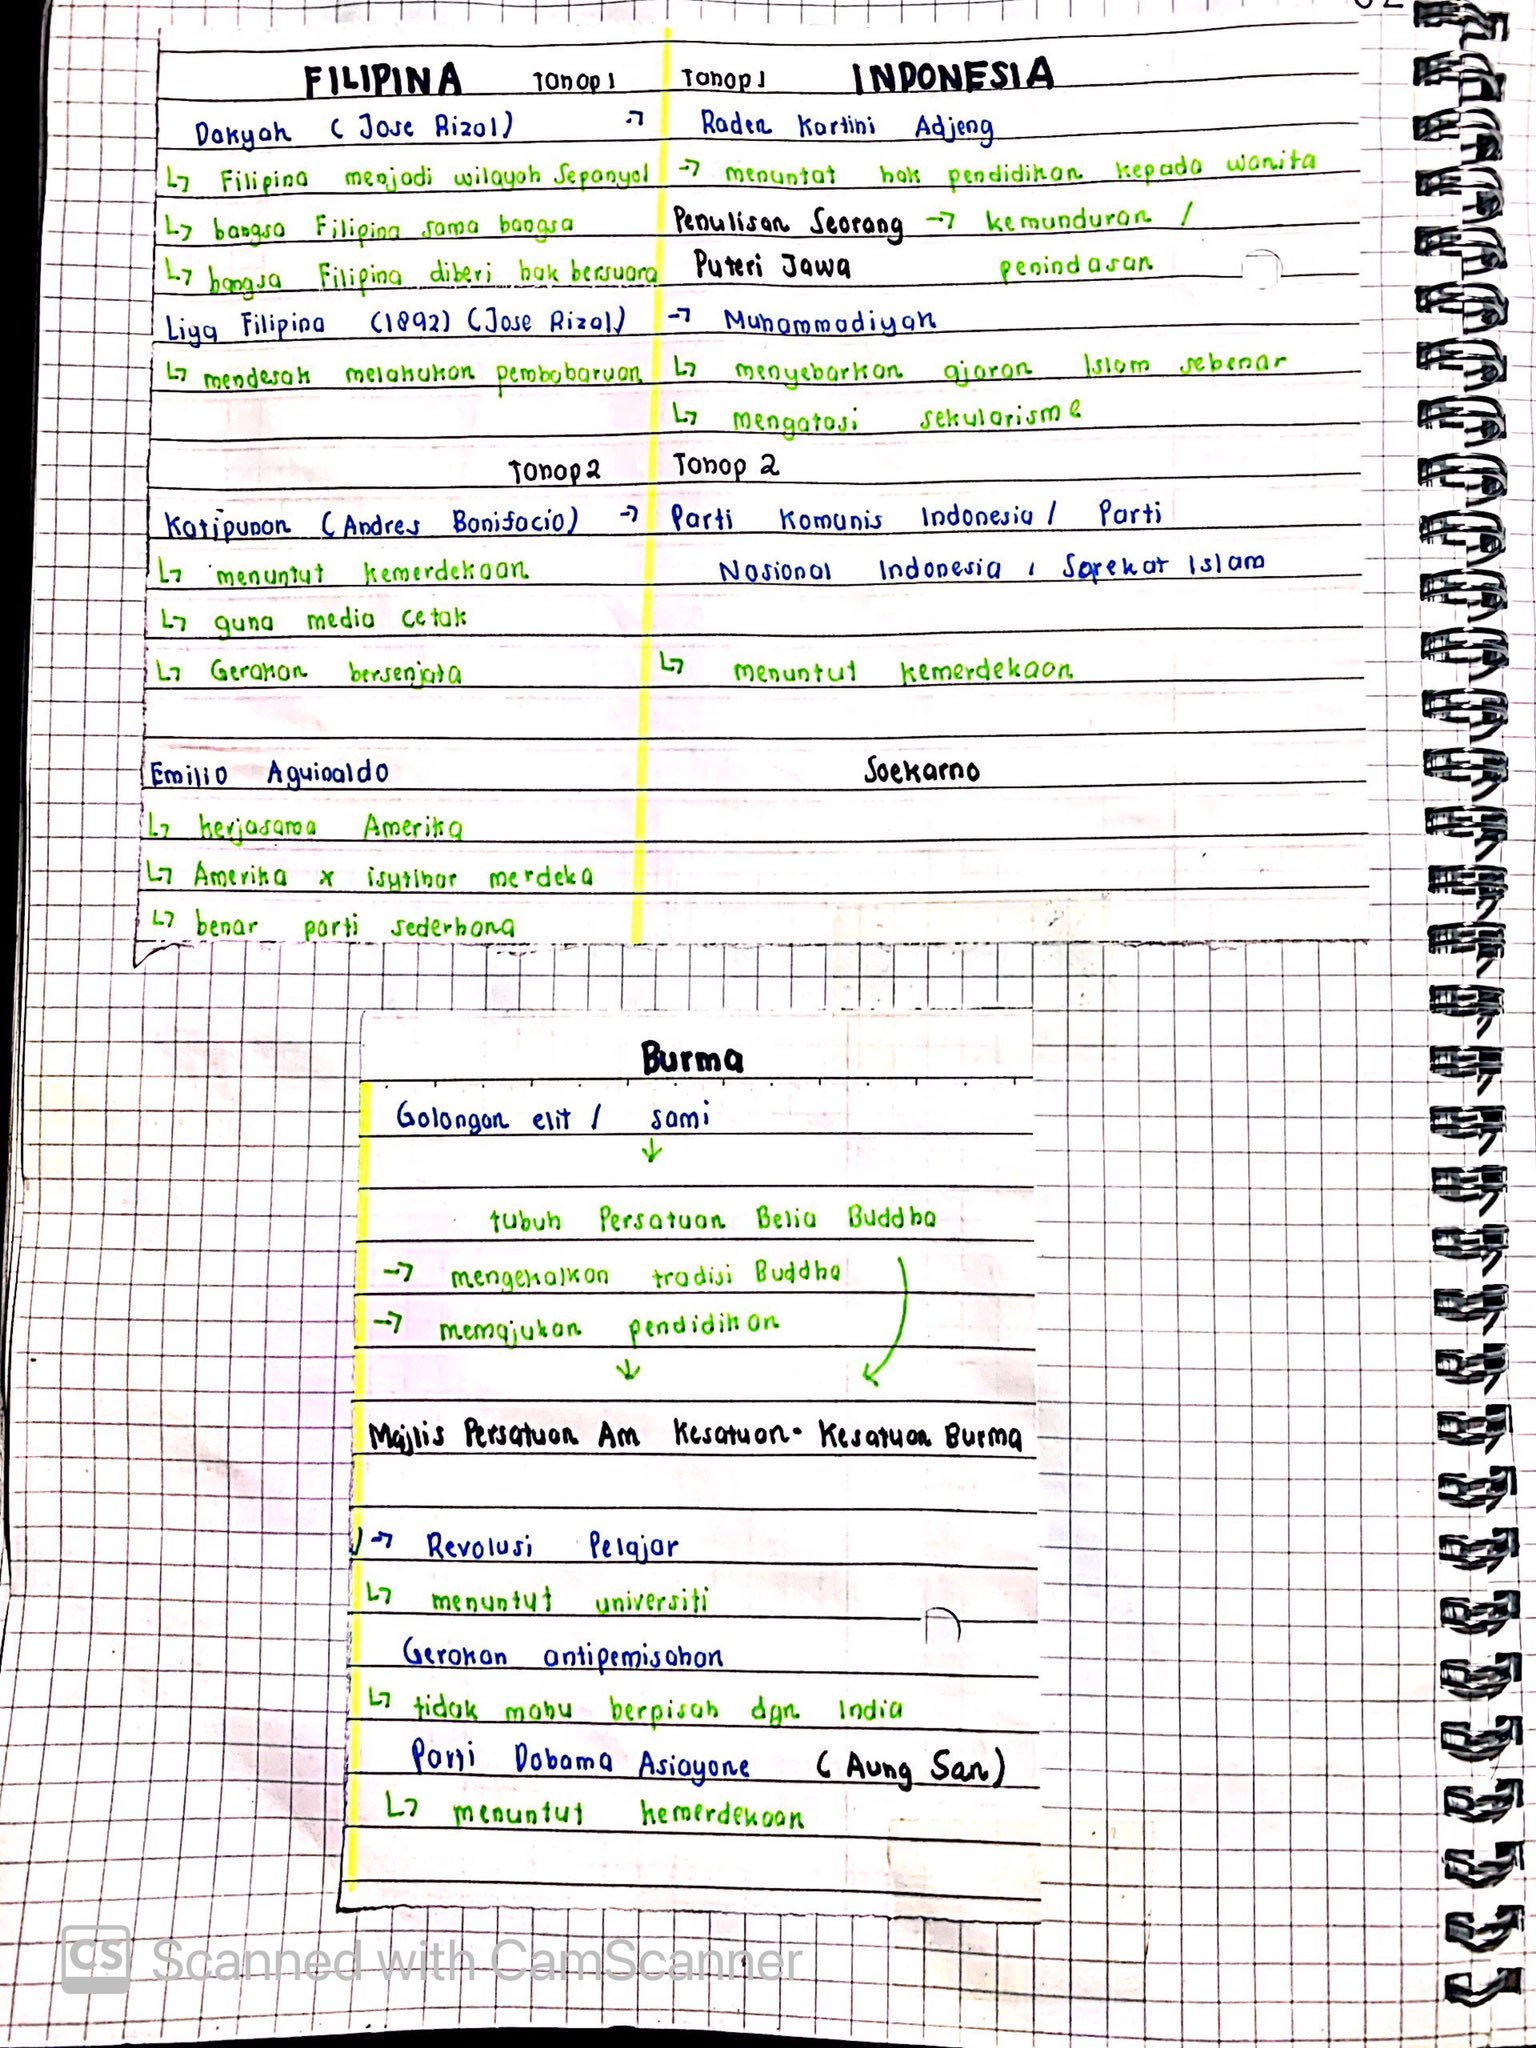 FILIPINA Tahap 1
Dakyah (Jose Rizal)
↳ Filipina menjadi wilayah Sepanyol
↳ bangsa Filipina sama bangsa
↳ bangsa Filipina diberi hak bersuara
Liga Filipina (1892) (Jose Rizal)
↳ mendesak melakukan pembaharuan
Tahap 2
Katipunan (Andres Bonifacio)
↳ menuntut kemerdekaan
↳ guna media cetak
↳ Gerakan bersenjata
Emilio Aguinaldo
↳ kerjasama Amerika
↳ Amerika x isytihar merdeka
↳ benar parti sederhana
Tahap 1 INDONESIA
→ Raden Kartini Adjeng
→ menuntut hak pendidikan kepada wanita
Penulisan Seorang → kemunduran /
Puteri Jawa penindasan
→ Muhammadiyah
↳ menyebarkan ajaran Islam sebenar
↳ mengatasi sekularisme
Tahap 2
→ Parti Komunis Indonesia / Parti
Nasional Indonesia, Sarekat Islam
↳ menuntut kemerdekaan
Soekarno
Burma
Golongan elit / sami
↓
tubuh Persatuan Belia Buddha
→ mengekalkan tradisi Buddha
→ memajukan pendidikan
↓
Majlis Persatuan Am Kesatuan-Kesatuan Burma
→ Revolusi Pelajar
↳ menuntut universiti
Gerakan antipemisahan
↳ tidak mahu berpisah dgn India
Parti Dobama Asiayone (Aung San)
↳ menuntut kemerdekaan
CS Scanned with CamScanner